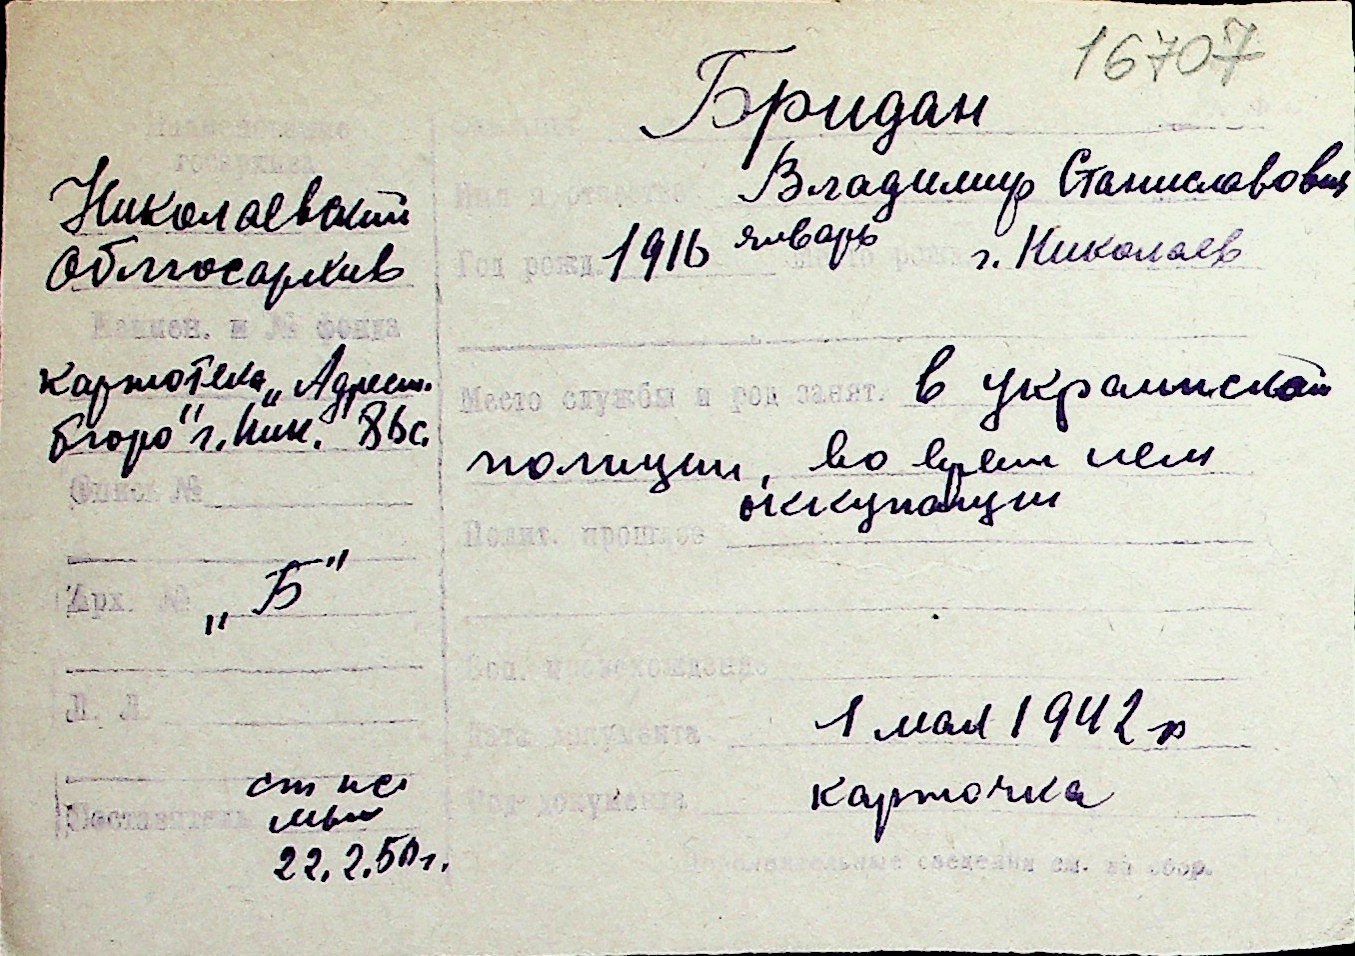 16707
Бридан
Наименование
госархива
Николаевский
Облгосархив
Имя и отчество Владимир Станиславович
Год рожд. 1916 январь Место рожд. г. Николаев
Наимен. и № фонда
картотека „Адресн.
бюро" г. Ник.
Место службы и род занят. в украинской
полиции, во время нем
оккупации
Опись №
Полит. прошлое
Арх. № „Б"
Соц. происхождение
Л. Л.
Дата документа 1 мая 1942 г
Составитель ст нс
22.2.50 г.
Вид документа карточка
Дополнительные сведения см. на обор.